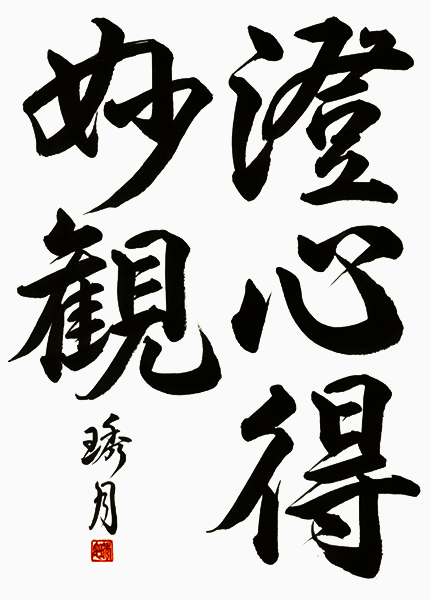 澄心得
妙観
琇月